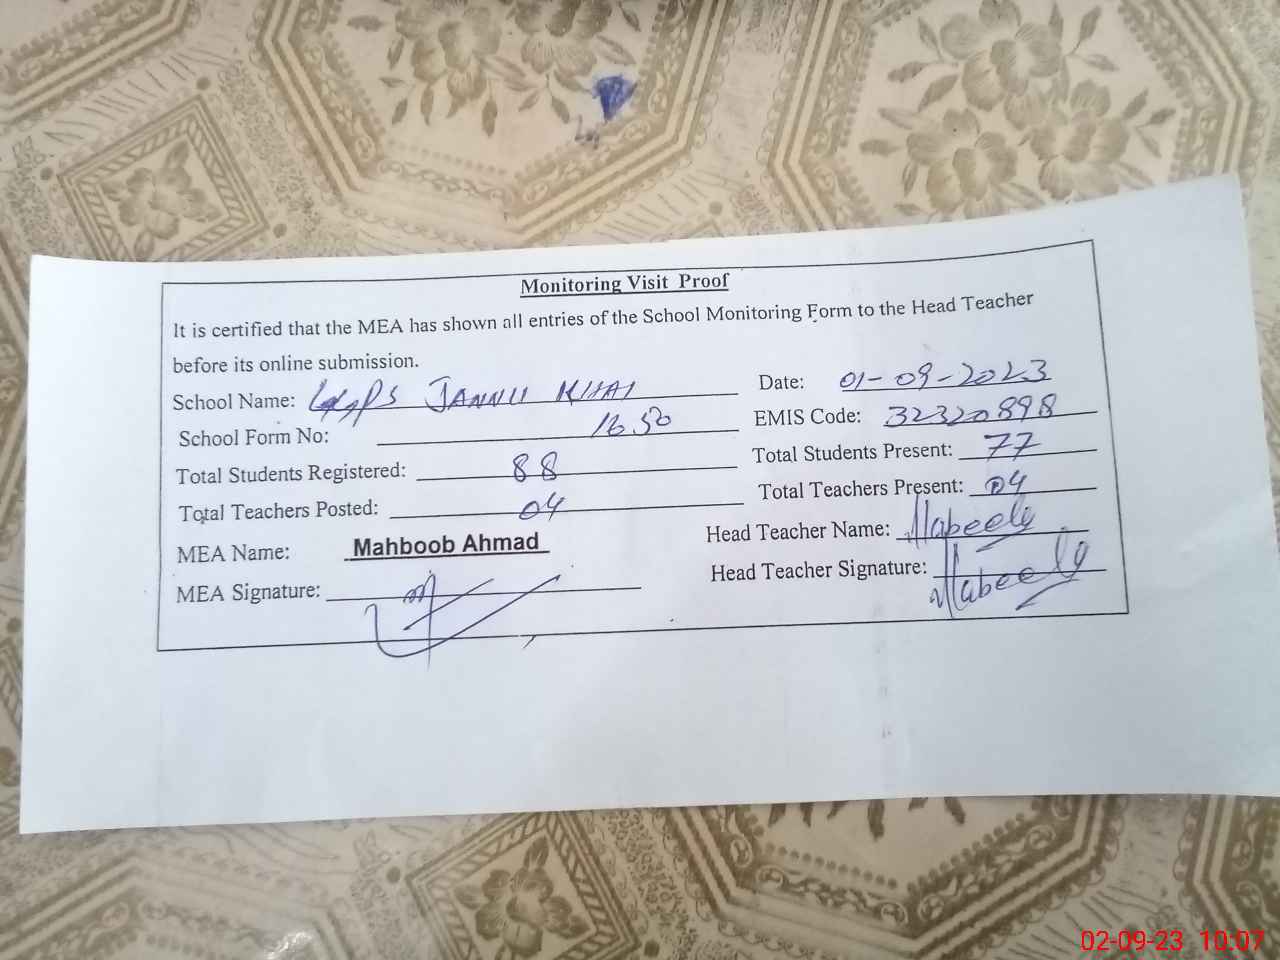 Monitoring Visit Proof
It is certified that the MEA has shown all entries of the School Monitoring Form to the Head Teacher
before its online submission.
School Name: GGPS JANNU KHAI Date: 01-09-2023
School Form No: 1650 EMIS Code: 32320898
Total Students Registered: 88 Total Students Present: 77
Total Teachers Posted: 04 Total Teachers Present: 04
MEA Name: Mahboob Ahmad Head Teacher Name:
MEA Signature: Head Teacher Signature:
02-09-23 10:07